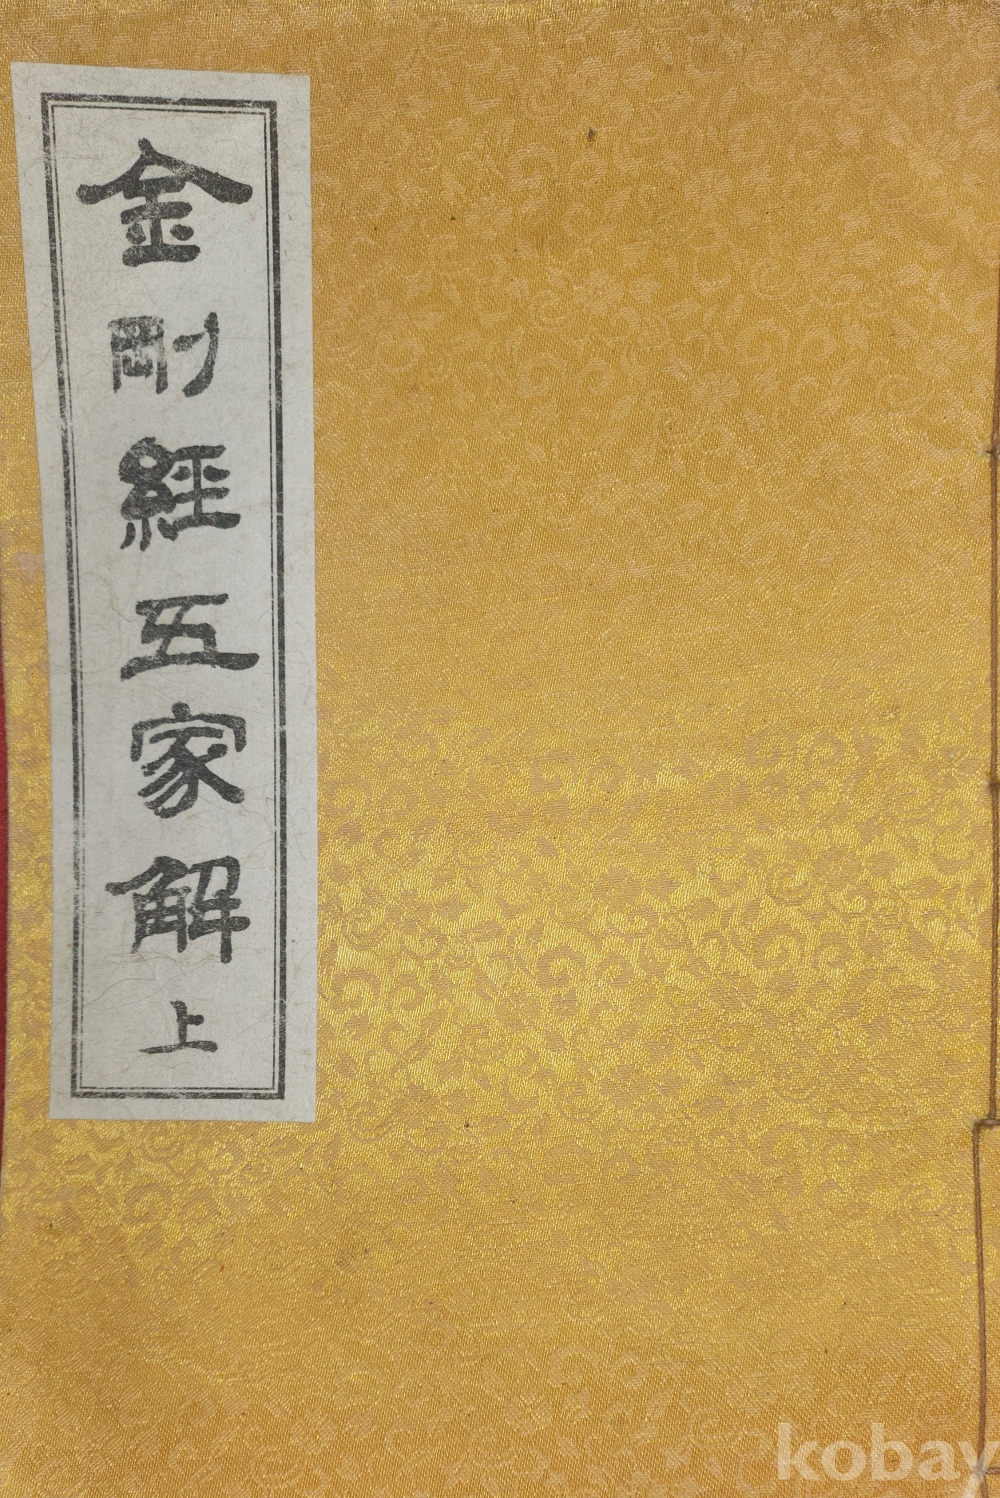 金剛經五家解 上
kobay